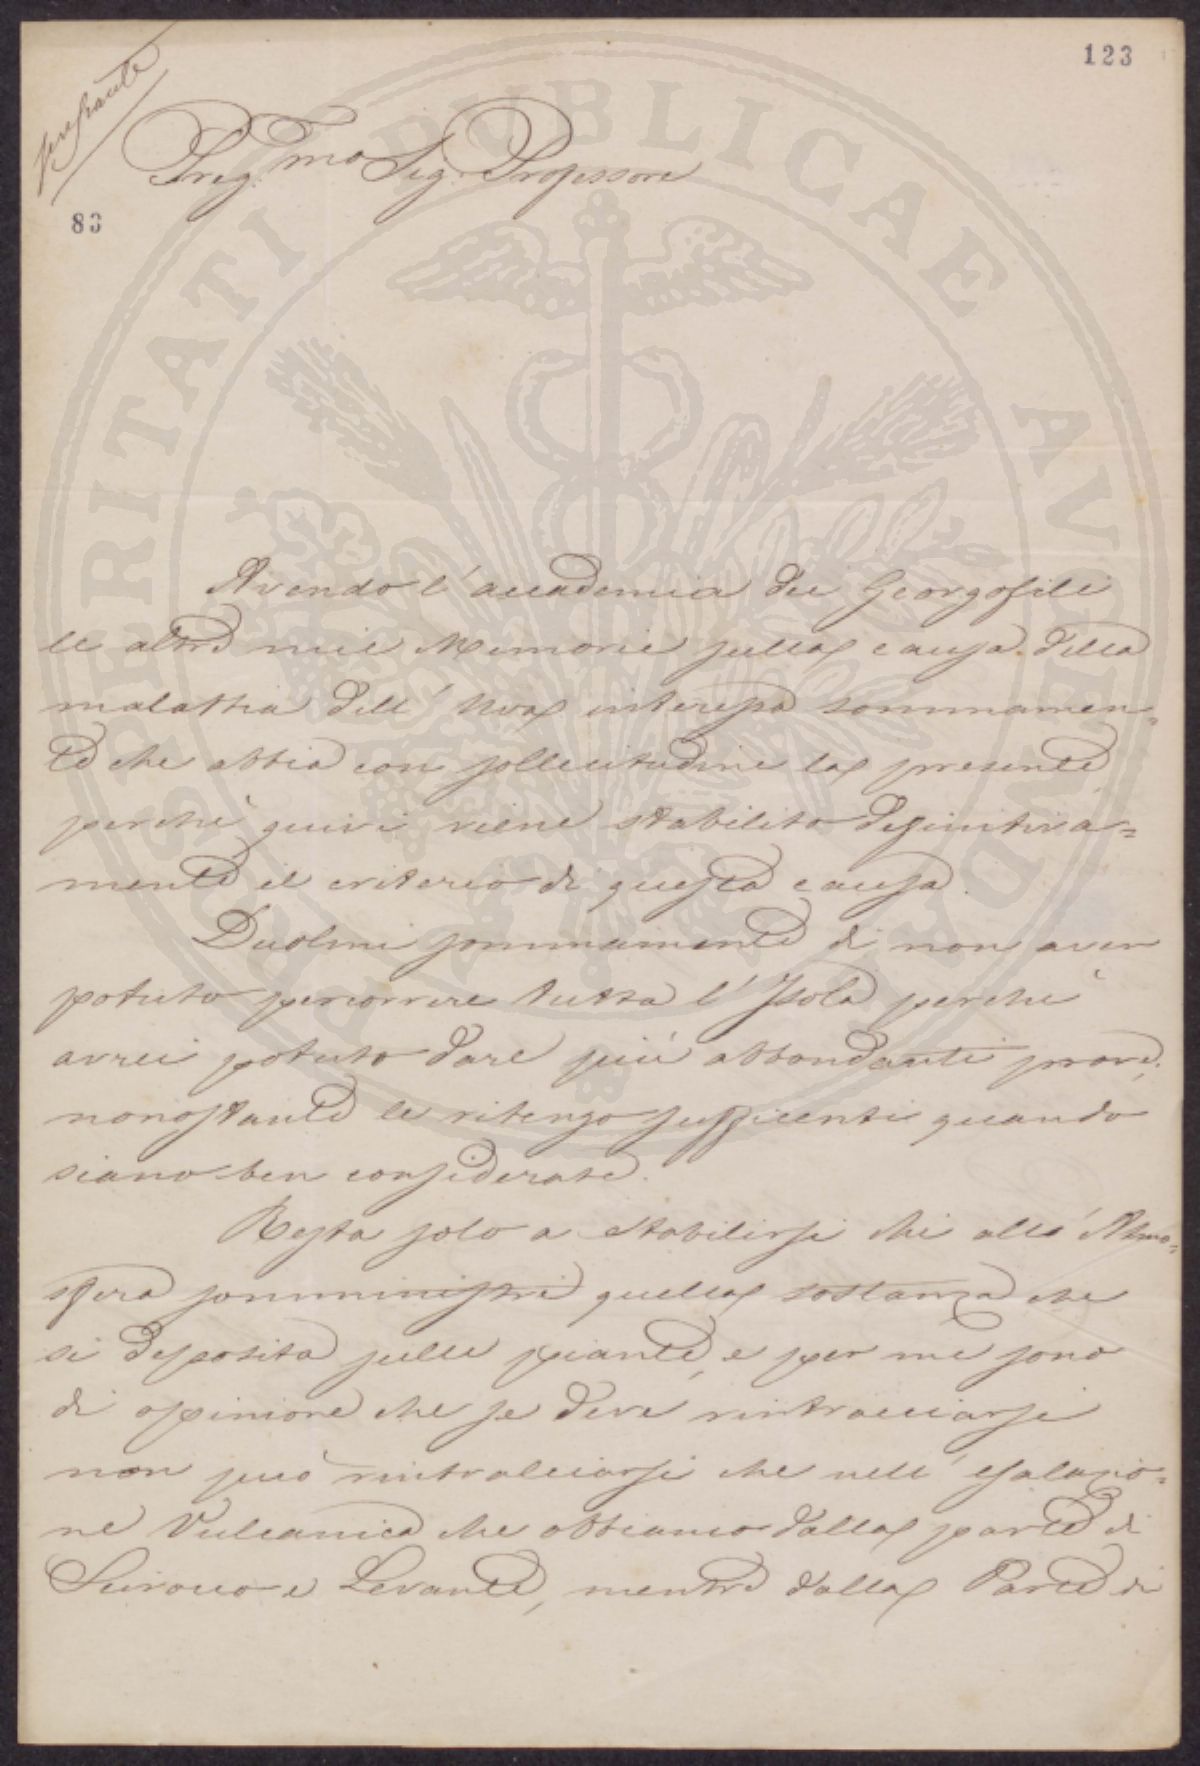 123
Preg.mo Sig. Professore
83
PROSPERITATI PUBLICAE AVGENDAE
Avendo l'accademia dei Georgofili
le altre mie Memorie sulla causa della
malattia dell' Uva interessa sommamen=
te che abbia con sollecitudine la presente
perchè quivi viene stabilito definitiva=
mente il criterio di questa causa.
Duolmi sommamente di non aver
potuto percorrere tutta l' Isola perchè
avrei potuto dare più abbondanti prove;
nonostante le ritengo sufficenti quando
siano ben considerate.
Resta solo a stabilirsi chi all' Atmo=
sfera somministri quella sostanza che
si deposita sulle piante, e per me sono
di opinione che se deve rintracciarsi
non può rintracciarsi che nell' esalazio=
ne Vulcanica che abbiamo dalla parte di
Scirocco e Levante, mentre dalla Parte di